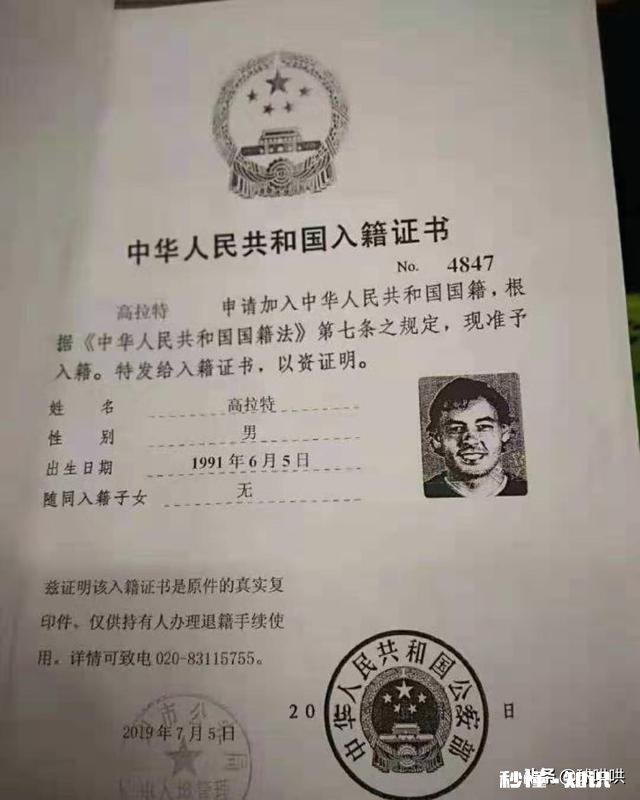 中华人民共和国入籍证书
No. 4847
高拉特 申请加入中华人民共和国国籍，根
据《中华人民共和国国籍法》第七条之规定，现准予
入籍。特发给入籍证书，以资证明。
姓 名 高拉特
性 别 男
出生日期 1991年6月5日
随同入籍子女 无
兹证明该入籍证书是原件的真实复
印件，仅供持有人办理退籍手续使
用。详情可致电 020-83115755。
中华人民共和国公安部
20 日
市公
2019年7月5日
入境管理
秒懂-知识